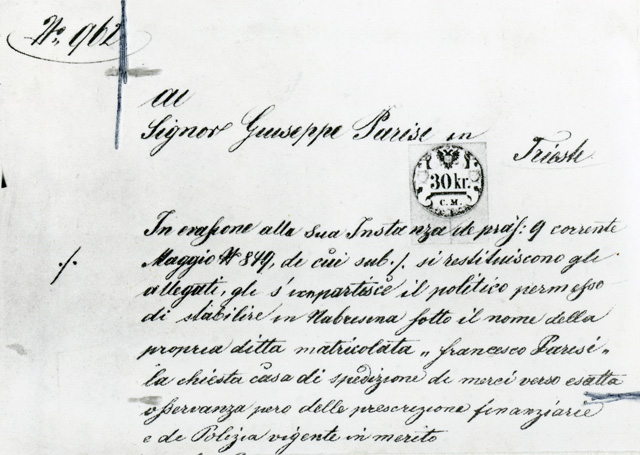 No. 962
Al
Signor Giuseppe Parise in Trieste.
30 kr.
C. M.
In evasione alla sua Instanza de präs: 9 corrente
./.
Maggio N 849, di cui sub ./. si restituiscono gli
allegati, gli s'impartisce il politico permesso
di stabilire in Nabresina sotto il nome della
propria ditta matricolata „ Francesco Parisi "
la chiesta casa di spedizione di merci verso esatta
osservanza pero delle prescrizione finanziarie
e di Polizia vigente in merito